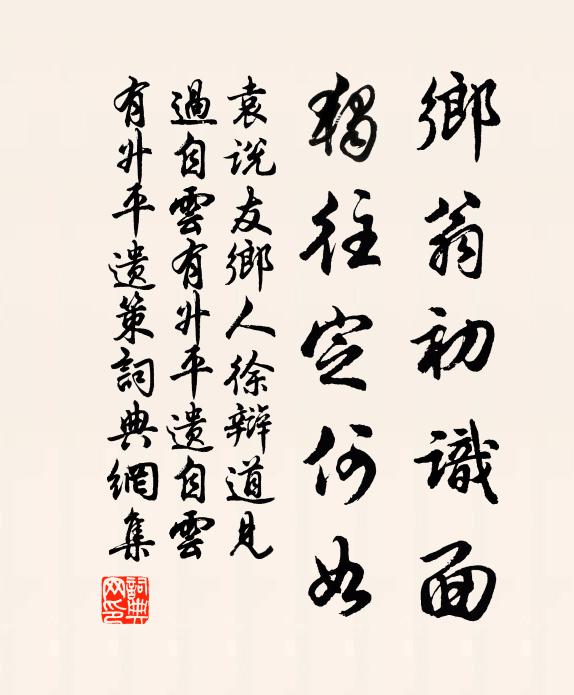 鄉翁初識面
獨往定何如
袁説友鄉人徐辯道見
過自雲有升平遺自雲
有升平遺策詞典網集
詞典網印